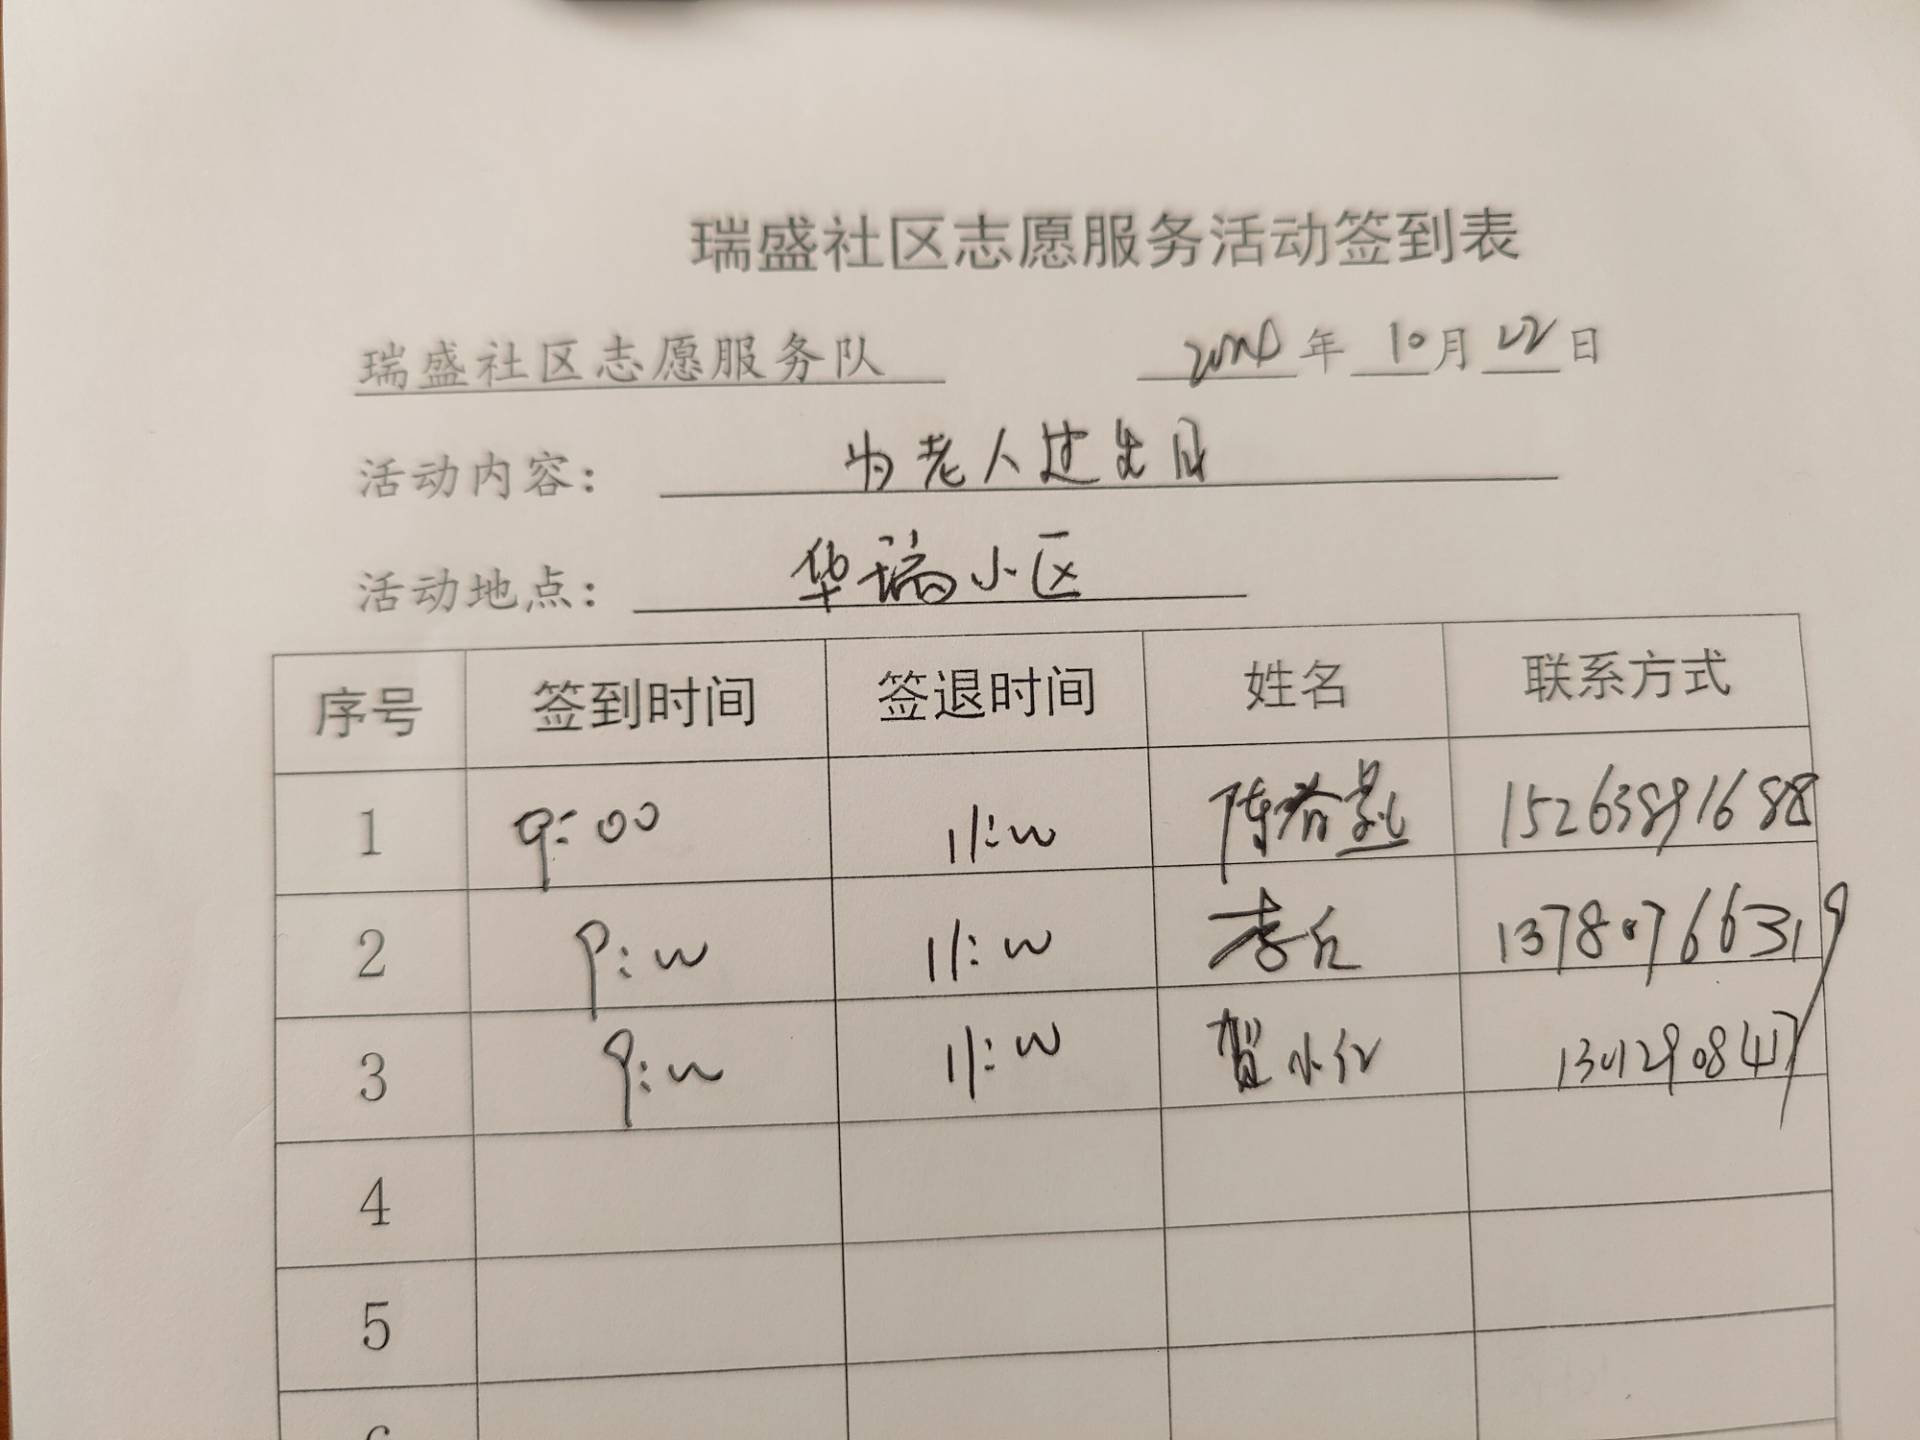 瑞盛社区志愿服务活动签到表
瑞盛社区志愿服务队 年 10 月 22 日
活动内容: 为老人过生日
活动地点: 华瑞小区
序号 签到时间 签退时间 姓名 联系方式
1 9:00 11:00 陈 15263891688
2 9:00 11:00 13780766319
3 9:00 11:00 贺小红
4
5